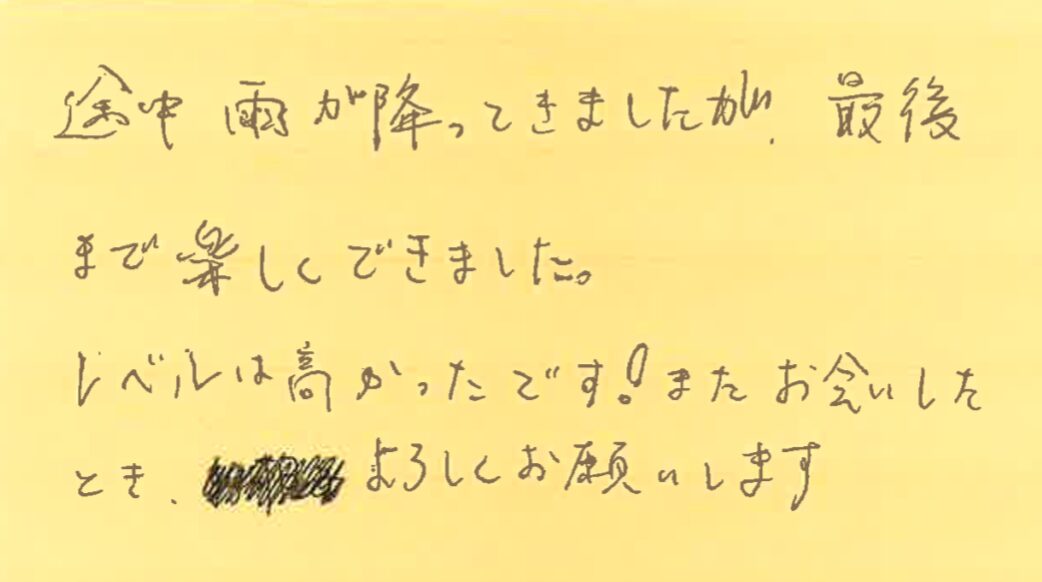 途中雨が降ってきましたが、最後
まで楽しくできました。
レベルは高かったです!またお会いした
とき、よろしくお願いします